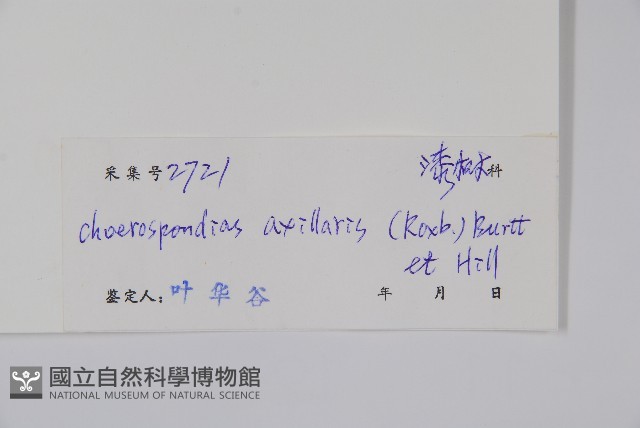 采集号 2721 漆树科
Choerospondias axillaris (Roxb.) Burtt
et Hill
鉴定人: 叶华谷 年 月 日
國立自然科學博物館
NATIONAL MUSEUM OF NATURAL SCIENCE